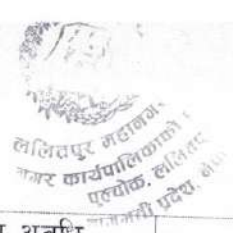 ललितपुर महानगर
नगर कार्यपालिकाको
पुल्चोक, ललितपु
बागमती प्रदेश, नेपा
अवधि